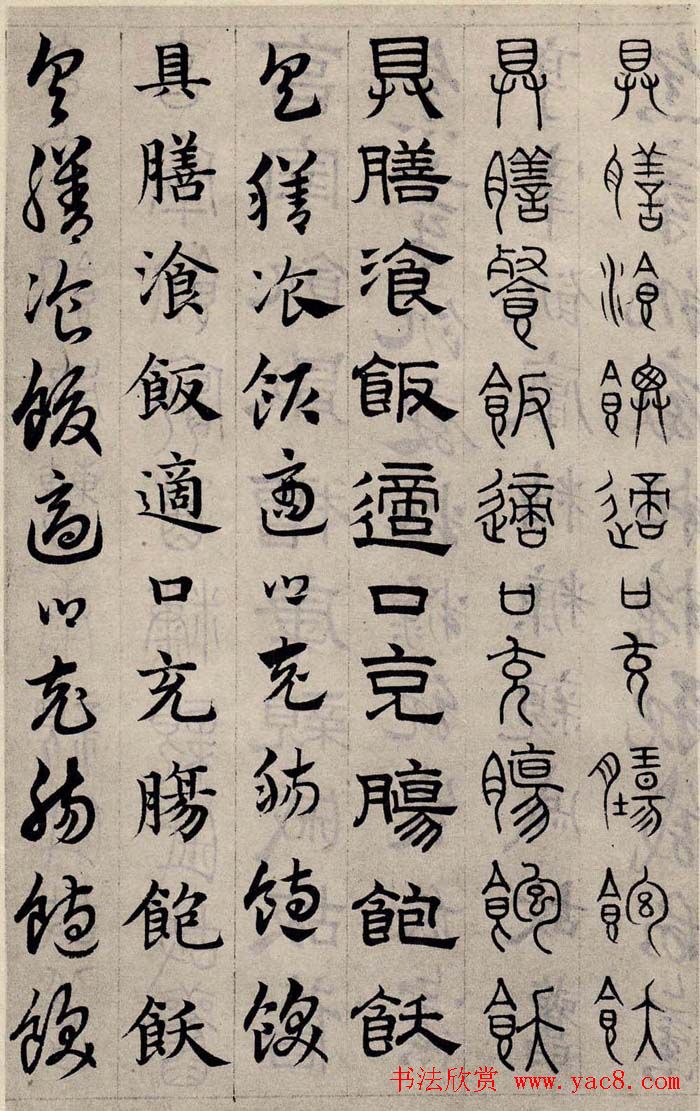 具膳飡飯適口充腸飽飫
具膳餐飯適口充腸飽飫
具膳飡飯適口充腸飽飫
具膳飡飯適口充腸飽飫
具膳飡飯適口充腸飽飫
具膳飡飯適口充腸飽飫
书法欣赏 www.yac8.com